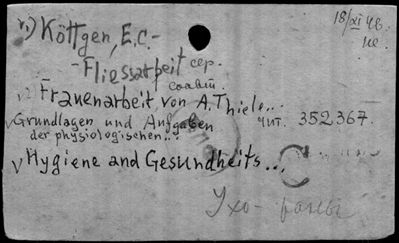 v1) Köttgen, E.C.-
18/XI 46.
- Fliessarbeit сер.
v2) Frauenarbeit, von A. Thiele...
v Grundlagen und Aufgaben чит. 352367.
der physiologischen...
v Hygiene and Gesundheits...
Ухо-